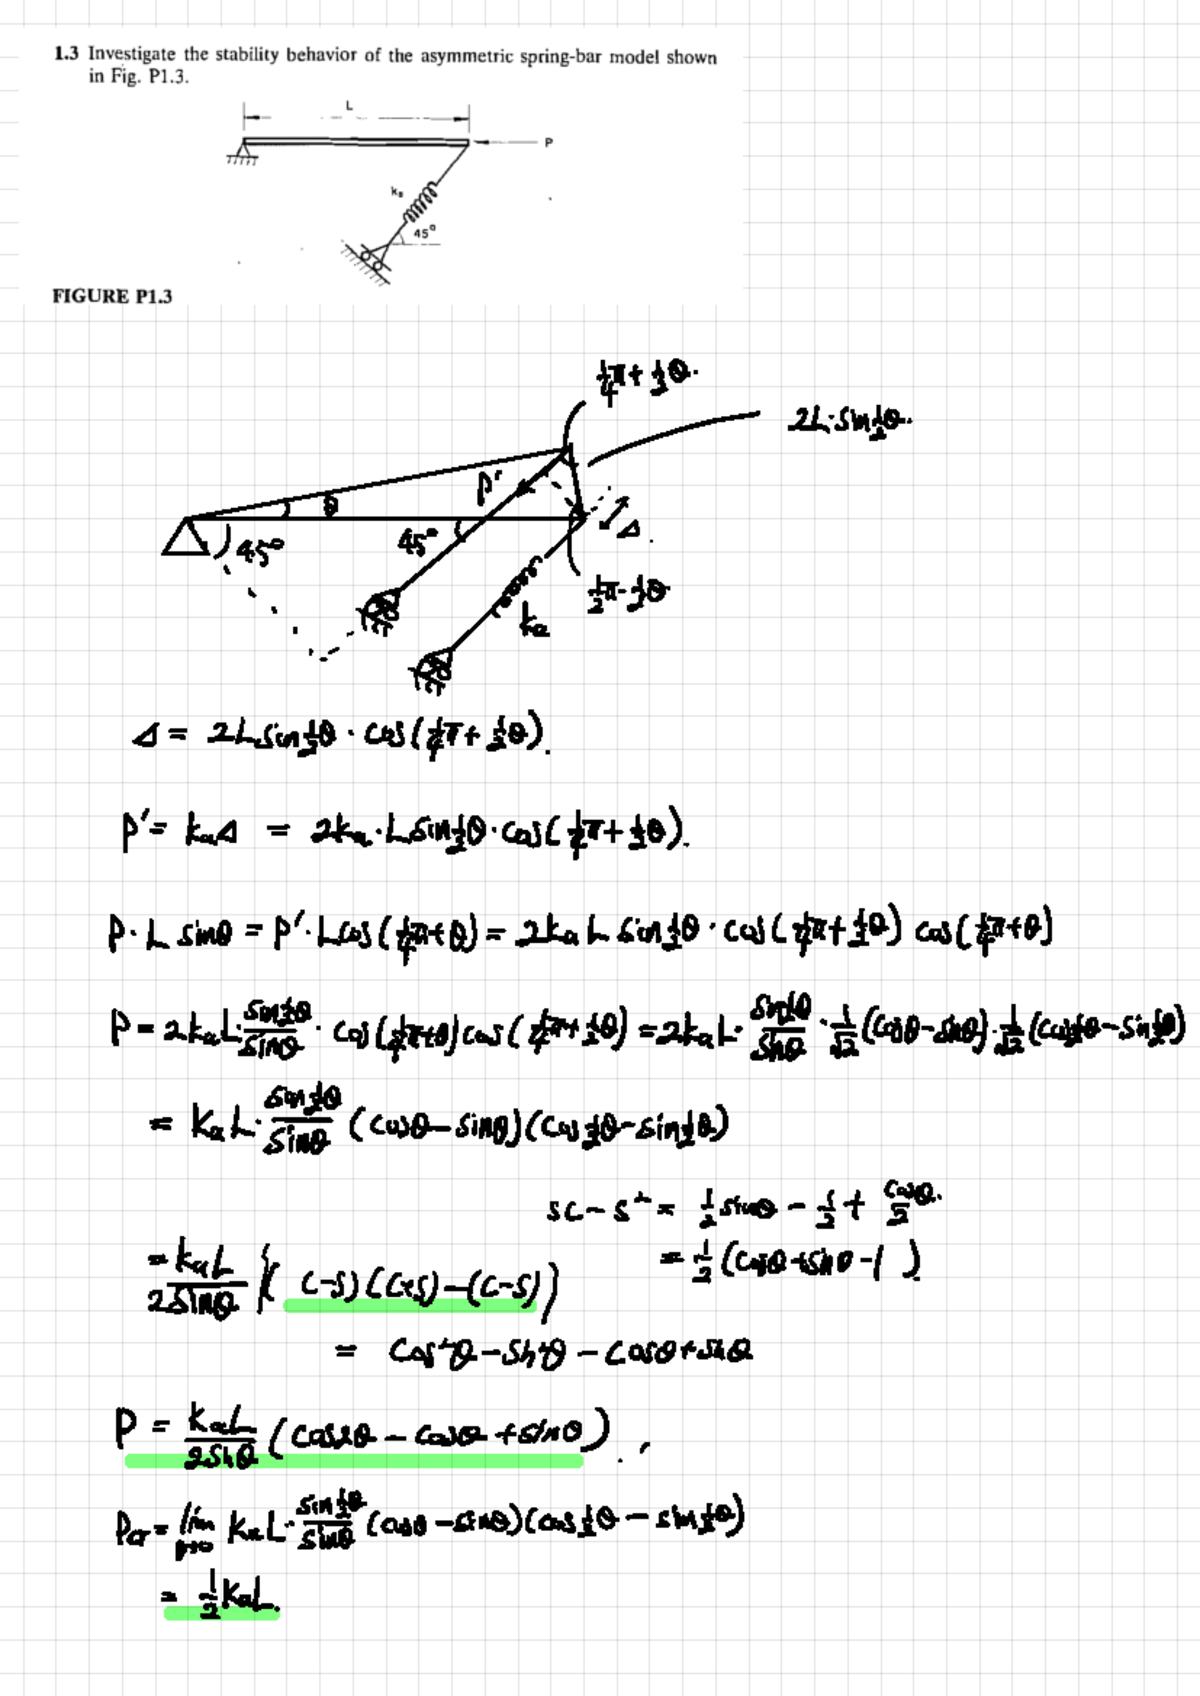 1.3 Investigate the stability behavior of the asymmetric spring-bar model shown
in Fig. P1.3.
L
P
kₐ
45°
FIGURE P1.3
1/4π + 1/2θ.
2L·sin1/2θ.
P'
θ
45°
45°
Δ.
1/2π - 1/2θ
kₐ
Δ = 2L sin1/2θ · cos(1/4π + 1/2θ).
P' = kₐΔ = 2kₐ·L sin1/2θ · cos(1/4π + 1/2θ).
P·L sinθ = P'·L cos(1/4π+θ) = 2kₐ L sin1/2θ · cos(1/4π + 1/2θ) cos(1/4π+θ)
P = 2kₐL· sin1/2θ/sinθ · cos(1/4π+θ) cos(1/4π + 1/2θ) = 2kₐL· sin1/2θ/sinθ · 1/√2 (cosθ - sinθ)· 1/√2 (cos1/2θ - sin1/2θ)
= kₐL· sin1/2θ/sinθ (cosθ - sinθ)(cos1/2θ - sin1/2θ)
sc - s² = 1/2 sinθ - 1/2 + cosθ/2.
= 1/2 (cosθ + sinθ - 1)
= kₐL/2sinθ {(c-s)(c+s) - (c-s)}
= cos²θ - sin²θ - cosθ + sinθ
P = kₐL/2sinθ (cos2θ - cosθ + sinθ).
Pcr = lim θ→0 kₐL· sin1/2θ/sinθ (cosθ - sinθ)(cos1/2θ - sin1/2θ)
= 1/2 kₐL.